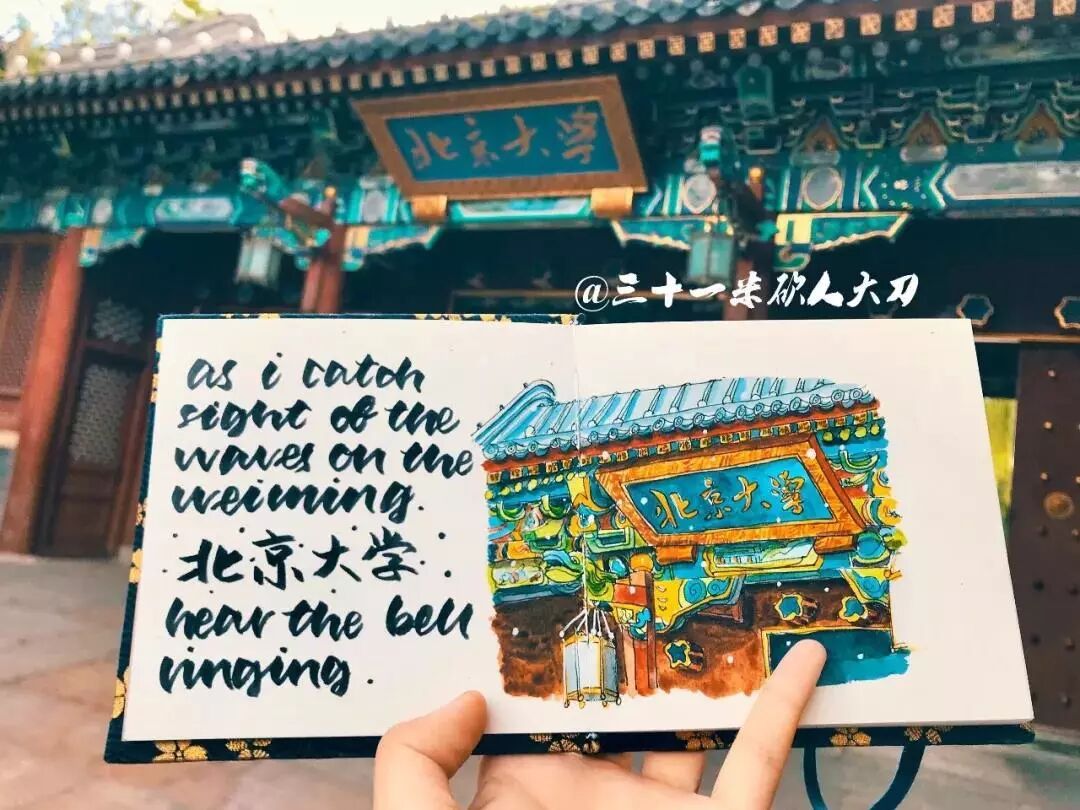 北京大学
@三十一米砍人大刀
as i catch
sight of the
waves on the
weiming.
北京大学
hear the bell
ringing.
北京大学